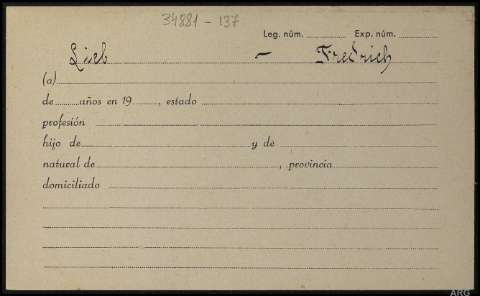 34881 - 137
Leg. núm. Exp. núm.
Lieb - Fredrich
(a)
de años en 19 , estado
profesión
hijo de y de
natural de , provincia
domiciliado
ARG